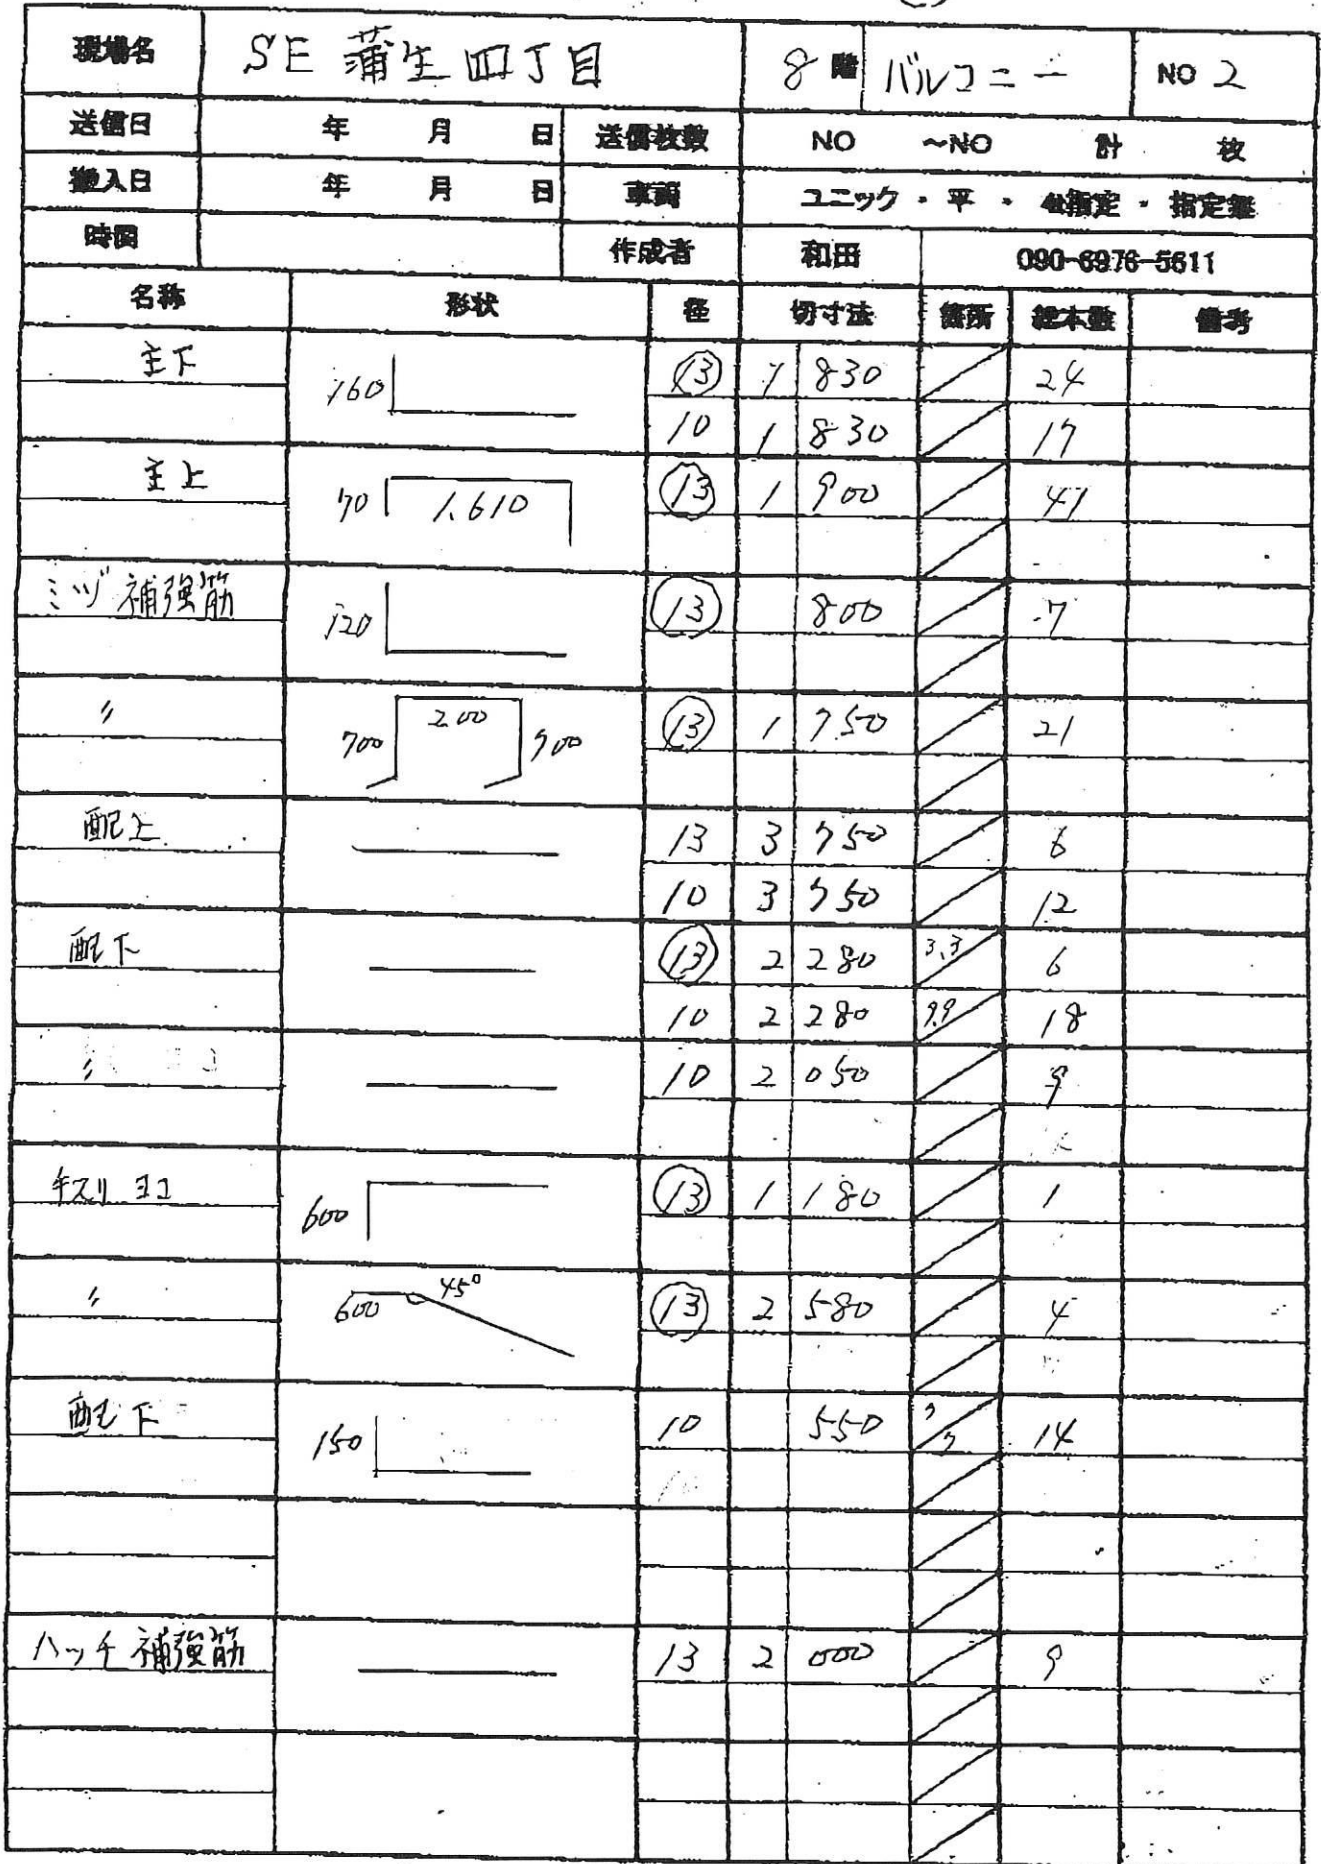 現場名 SE 蒲生四丁目 8 階 バルコニー NO 2
送信日 年 月 日 送信枚数 NO ～NO 計 枚
搬入日 年 月 日 車両 ユニック・平・4t指定・指定無
時間 作成者 和田 090-6976-5611
名称 形状 径 切寸法 箇所 総本数 備考
主下 160 13 1 830 24
10 1 830 17
主上 70 1.610 13 1 900 41
ミゾ補強筋 120 13 800 7
〃 700 200 700 13 1 750 21
配上 13 3 750 6
10 3 750 12
配下 13 2 280 3.3 6
10 2 280 9.9 18
〃 10 2 050 9
手スリ ヨコ 600 13 1 180 1
〃 600 45° 13 2 580 4
配下 150 10 550 7 7 14
ハッチ補強筋 13 2 000 9